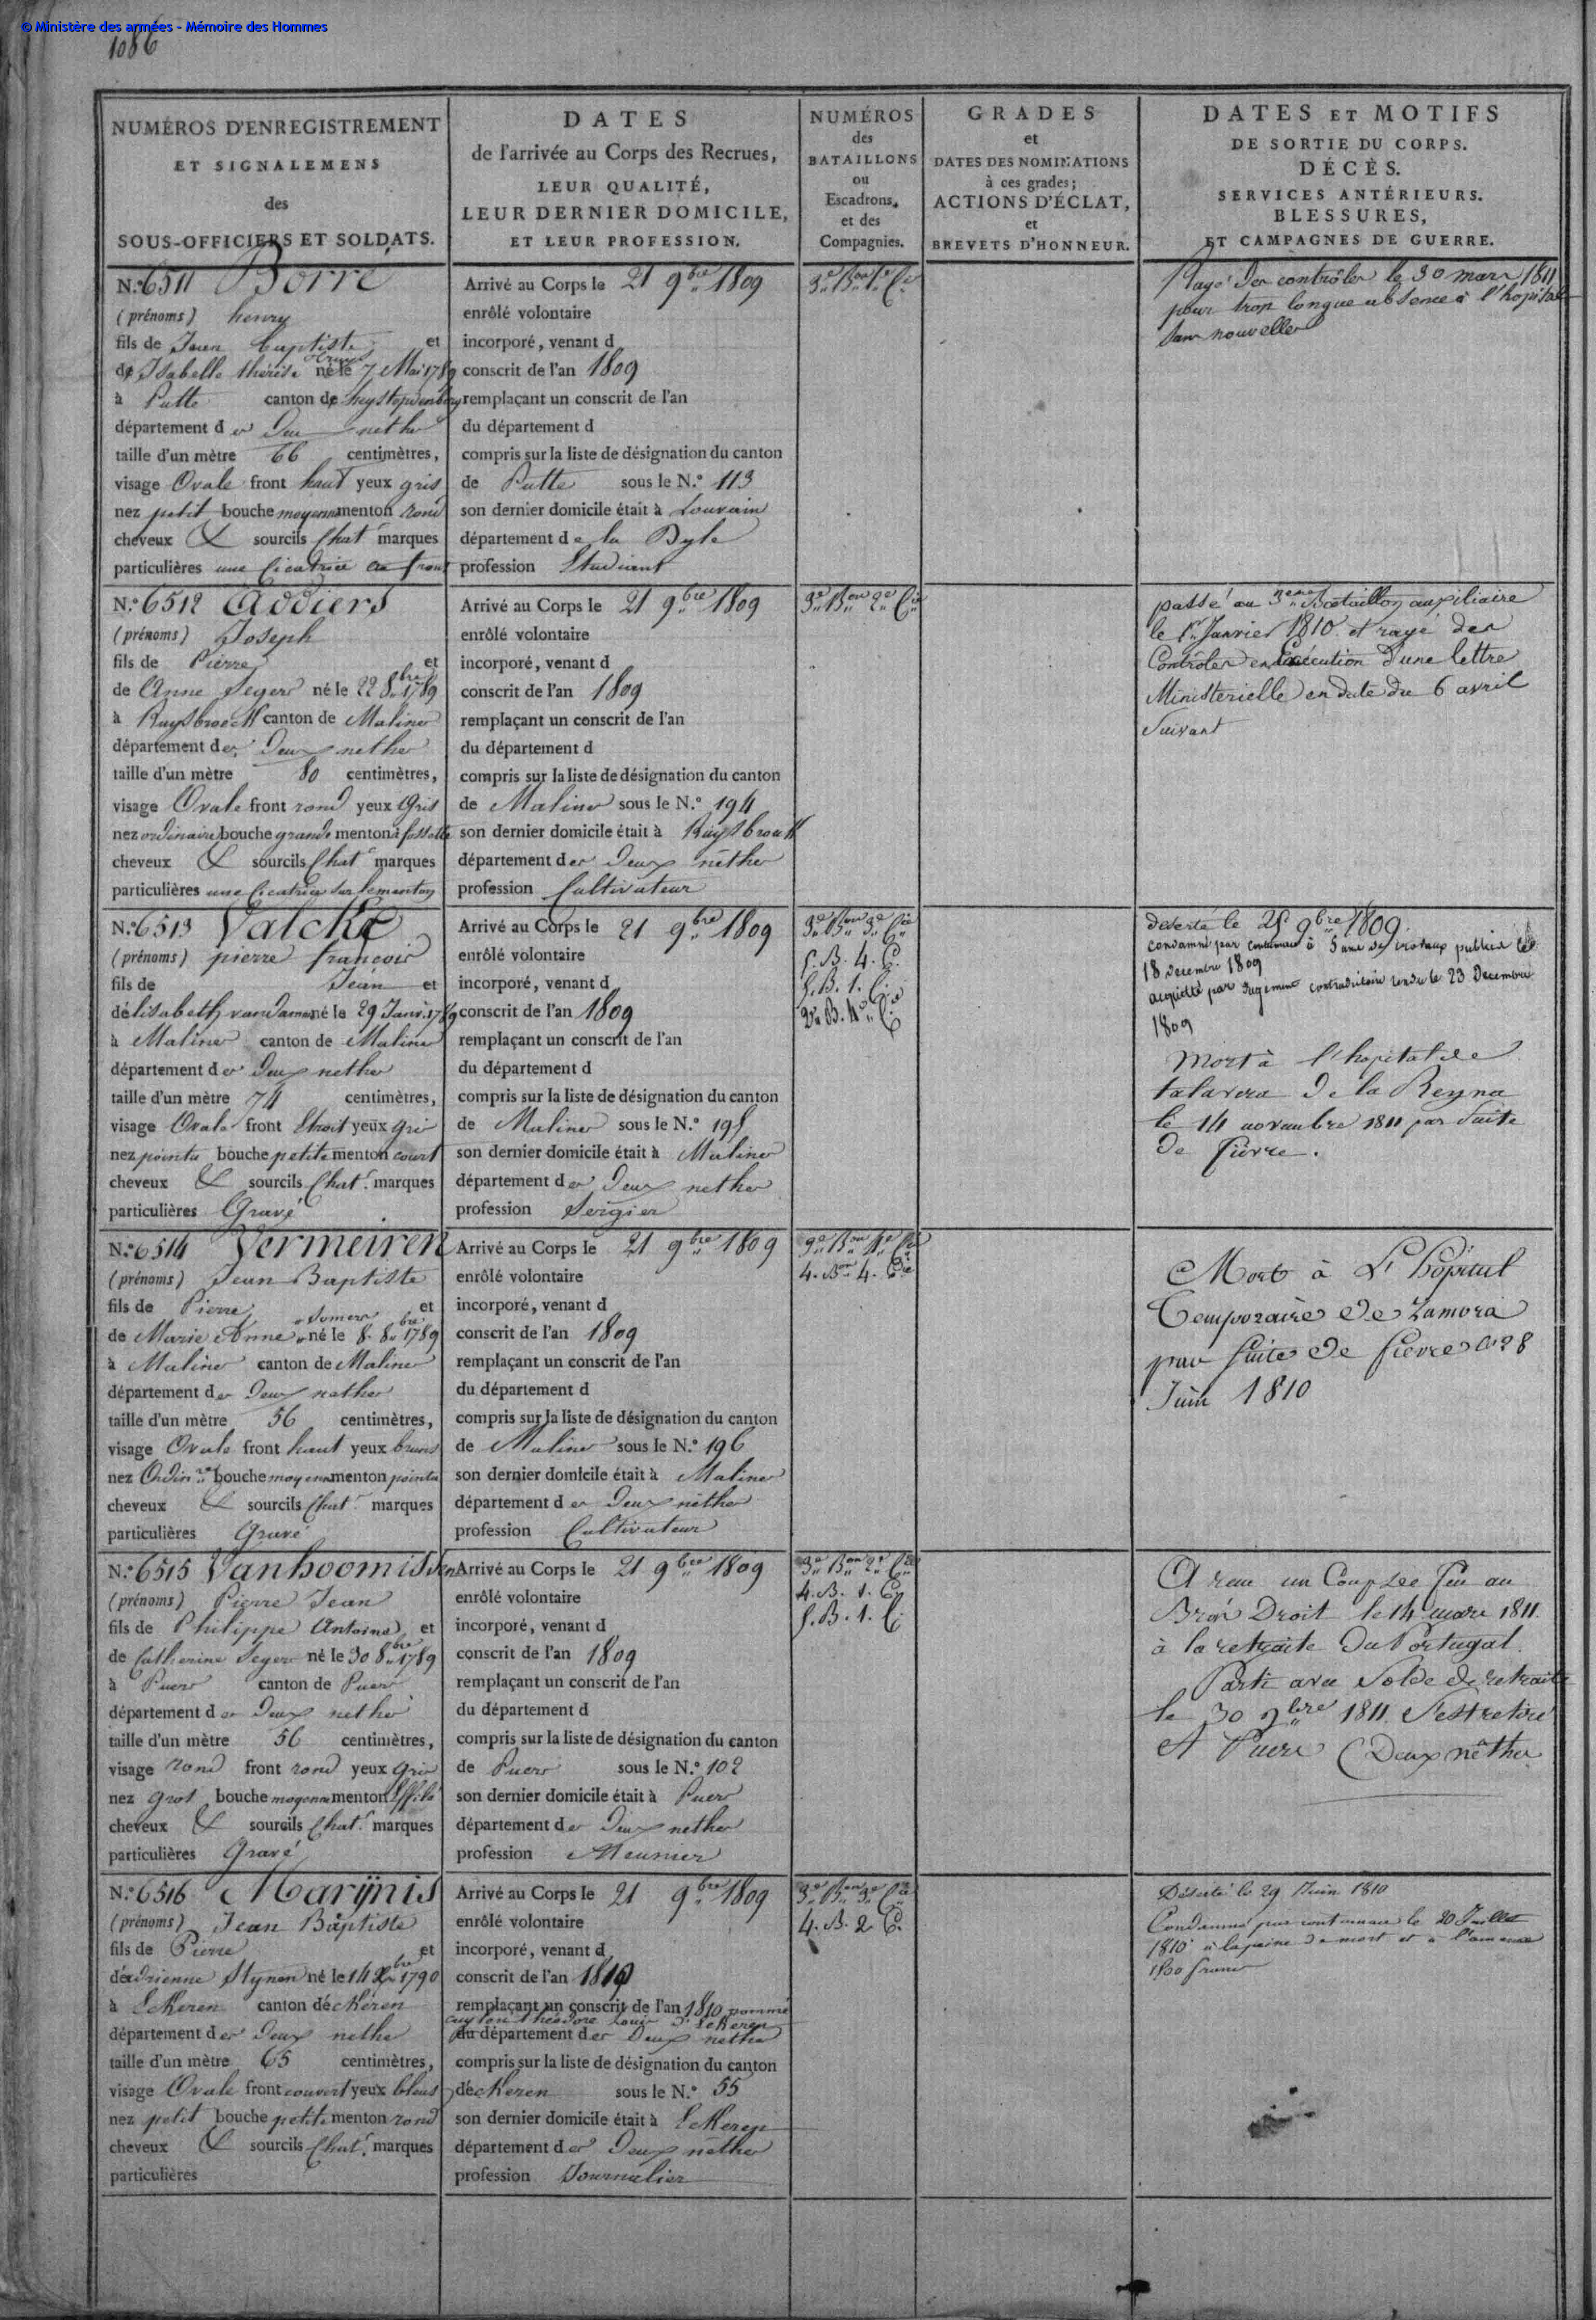 © Ministère des armées - Mémoire des Hommes
1086
NUMÉROS D'ENREGISTREMENT
ET SIGNALEMENS
des
SOUS-OFFICIERS ET SOLDATS.
DATES
de l'arrivée au Corps des Recrues,
LEUR QUALITÉ,
LEUR DERNIER DOMICILE,
ET LEUR PROFESSION.
NUMÉROS
des
BATAILLONS
ou
Escadrons,
et des
Compagnies.
GRADES
et
DATES DES NOMINATIONS
à ces grades;
ACTIONS D'ÉCLAT,
et
BREVETS D'HONNEUR.
DATES ET MOTIFS
DE SORTIE DU CORPS.
DÉCÈS.
SERVICES ANTÉRIEURS.
BLESSURES,
ET CAMPAGNES DE GUERRE.
N.º 6511 Borré
(prénoms) henry
fils de Jean Baptiste et
de Isabelle thérèse né le 7 Mai 1789
à Putte canton de
département des Deux nethes
taille d'un mètre 66 centimètres,
visage Ovale front haut yeux gris
nez petit bouche moyenne menton rond
cheveux & sourcils Chat. marques
particulières une Cicatrice au front
Arrivé au Corps le 21 9bre 1809
enrôlé volontaire
incorporé, venant d
conscrit de l'an 1809
remplaçant un conscrit de l'an
du département d
compris sur la liste de désignation du canton
de Putte sous le N.º 113
son dernier domicile était à Louvain
département de la Dyle
profession Etudiant
3e Bon 1e Cie
Rayé des contrôles le 30 mars 1811
pour trop longue absence à l'hopital
sans nouvelles
N.º 6512 Addiers
(prénoms) Joseph
fils de Pierre et
de Anne Segers né le 22 8bre 1789
à Ruysbroeck canton de Malines
département des Deux nethes
taille d'un mètre 80 centimètres,
visage Ovale front rond yeux Gris
nez ordinaire bouche grande menton à fossette
cheveux & sourcils Chat. marques
particulières une Cicatrice sur le menton
Arrivé au Corps le 21 9bre 1809
enrôlé volontaire
incorporé, venant d
conscrit de l'an 1809
remplaçant un conscrit de l'an
du département d
compris sur la liste de désignation du canton
de Malines sous le N.º 194
son dernier domicile était à Ruysbrouck
département des Deux nèthes
profession Cultivateur
3e Bon 2e Cie
passé au 3eme Bataillon auxiliaire
le 1er Janvier 1810 et rayé des
Contrôles en Exécution d'une lettre
Ministerielle en date du 6 avril
Suivant
N.º 6513 Valcke
(prénoms) pierre françois
fils de Jean et
délisabeth vandamme né le 29 Janv. 1789
à Malines canton de Malines
département des Deux nethes
taille d'un mètre 74 centimètres,
visage Ovale front Etroit yeux gris
nez pointu bouche petite menton court
cheveux & sourcils Chat. marques
particulières Gravé
Arrivé au Corps le 21 9bre 1809
enrôlé volontaire
incorporé, venant d
conscrit de l'an 1809
remplaçant un conscrit de l'an
du département d
compris sur la liste de désignation du canton
de Malines sous le N.º 195
son dernier domicile était à Malines
département des Deux nethes
profession Sergier
3e Bon 3e Cie
5. B. 4. C.
5. B. 1. C.
2e B. 4e Cie
déserté le 25 9bre 1809
condamné par contumace à 5 ans de travaux publics le
18 Decembre 1809
acquitté par Jugement contradictoire rendu le 23 Decembre
1809
Mort à l'hopital de
talavera de la Reyna
le 14 novembre 1811 par Suite
de fièvre.
N.º 6514 Vermeiren
(prénoms) Jean Baptiste
fils de Pierre et
de Marie Anne Somers né le 8. 8bre 1789
à Malines canton de Malines
département des Deux nethes
taille d'un mètre 56 centimètres,
visage Ovale front haut yeux bruns
nez Ordinre bouche moyenne menton pointu
cheveux & sourcils Chat. marques
particulières Gravé
Arrivé au Corps le 21 9bre 1809
enrôlé volontaire
incorporé, venant d
conscrit de l'an 1809
remplaçant un conscrit de l'an
du département d
compris sur la liste de désignation du canton
de Malines sous le N.º 196
son dernier domicile était à Malines
département des Deux nèthes
profession Cultivateur
3e Bon 4e Cie
4. Bon 4. Cie
Mort à L'hôpital
Temporaire de Zamora
par suite de fievre le 28
Juin 1810
N.º 6515 Vanhoomissen
(prénoms) Pierre Jean
fils de Philippe Antoine et
de Catherine Segers né le 30 8bre 1789
à Puers canton de Puers
département des Deux nethes
taille d'un mètre 56 centimètres,
visage rond front rond yeux gris
nez gros bouche moyenne menton Effilé
cheveux & sourcils Chat. marques
particulières Gravé
Arrivé au Corps le 21 9bre 1809
enrôlé volontaire
incorporé, venant d
conscrit de l'an 1809
remplaçant un conscrit de l'an
du département d
compris sur la liste de désignation du canton
de Puers sous le N.º 102
son dernier domicile était à Puers
département des Deux nethes
profession Meunier
3e Bon 2e Cie
4. B. 1. C.
5. B. 1. C.
A reçu un Coup de feu au
Bras Droit le 14 mars 1811.
à la retraite du Portugal.
Parti avec Solde de retraite
le 30 9bre 1811. S'est retiré
à Puers (Deux nèthes
N.º 6516 Marÿnis
(prénoms) Jean Baptiste
fils de Pierre et
déadrienne Stynen né le 14 Xbre 1790
à Eckeren canton déckeren
département des Deux nethes
taille d'un mètre 65 centimètres,
visage Ovale front couvert yeux bleus
nez petit bouche petite menton rond
cheveux & sourcils Chat. marques
particulières
Arrivé au Corps le 21 9bre 1809
enrôlé volontaire
incorporé, venant d
conscrit de l'an 1810
remplaçant un conscrit de l'an 1810 nommé
Cuylen théodore Louis d'Eckeren
du département des Deux nethes
compris sur la liste de désignation du canton
déckeren sous le N.º 55
son dernier domicile était à Eckeren
département des Deux nèthes
profession Journalier
3e Bon 3e Cie
4. B. 2. C.
Déserté le 29 Juin 1810
Condamné par contumace le 20 Juillet
1810 à la peine de mort et à l'amende
1500 francs